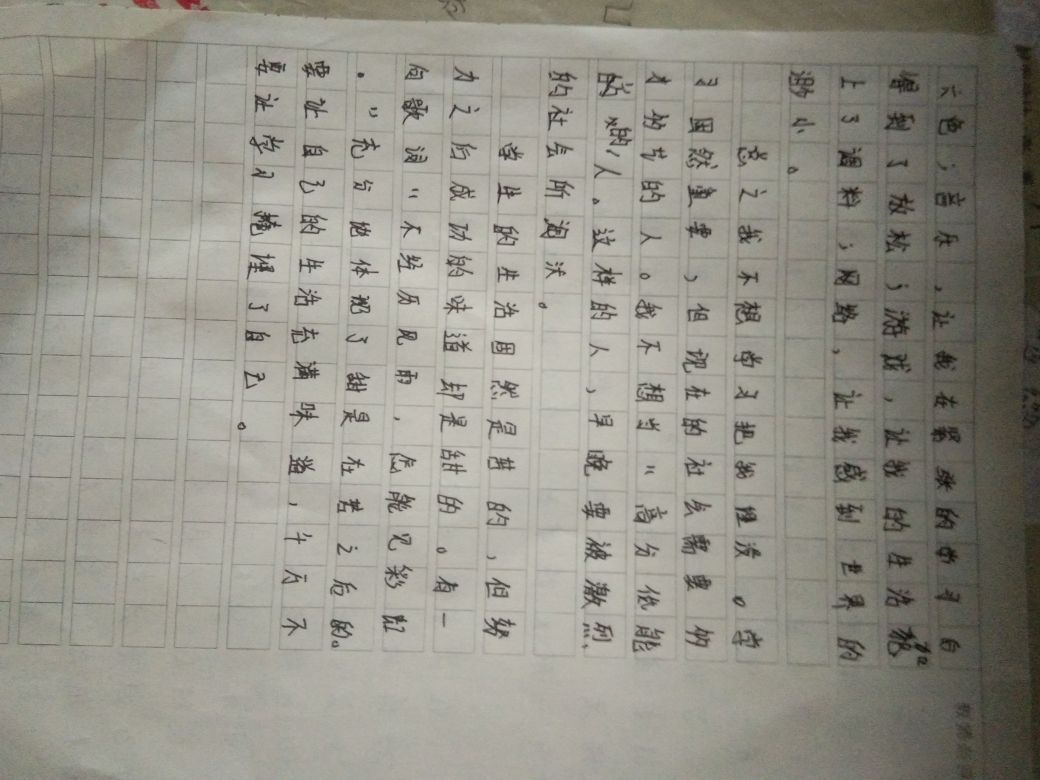 六色；音乐，让我在紧张的学习自
得到了放松；游戏，让我的生活加
上了调料；网路，让我感到世界的
渺小。
总之我不想学习把我埋没。学
习固然重要，但现在的社会需要的
才的节的人。我不想当“高分低能
的人。这样的人，早晚要被激烈
的社会所淘汰。
学生的生活固然是苦的，但努
力之后成功的味道却是甜的。有一
句歌词“不经历风雨，怎能见彩虹
。”充分地体现了甜是在苦之后的。
要让自己的生活充满味道，千万不
要让学习掩埋了自己。